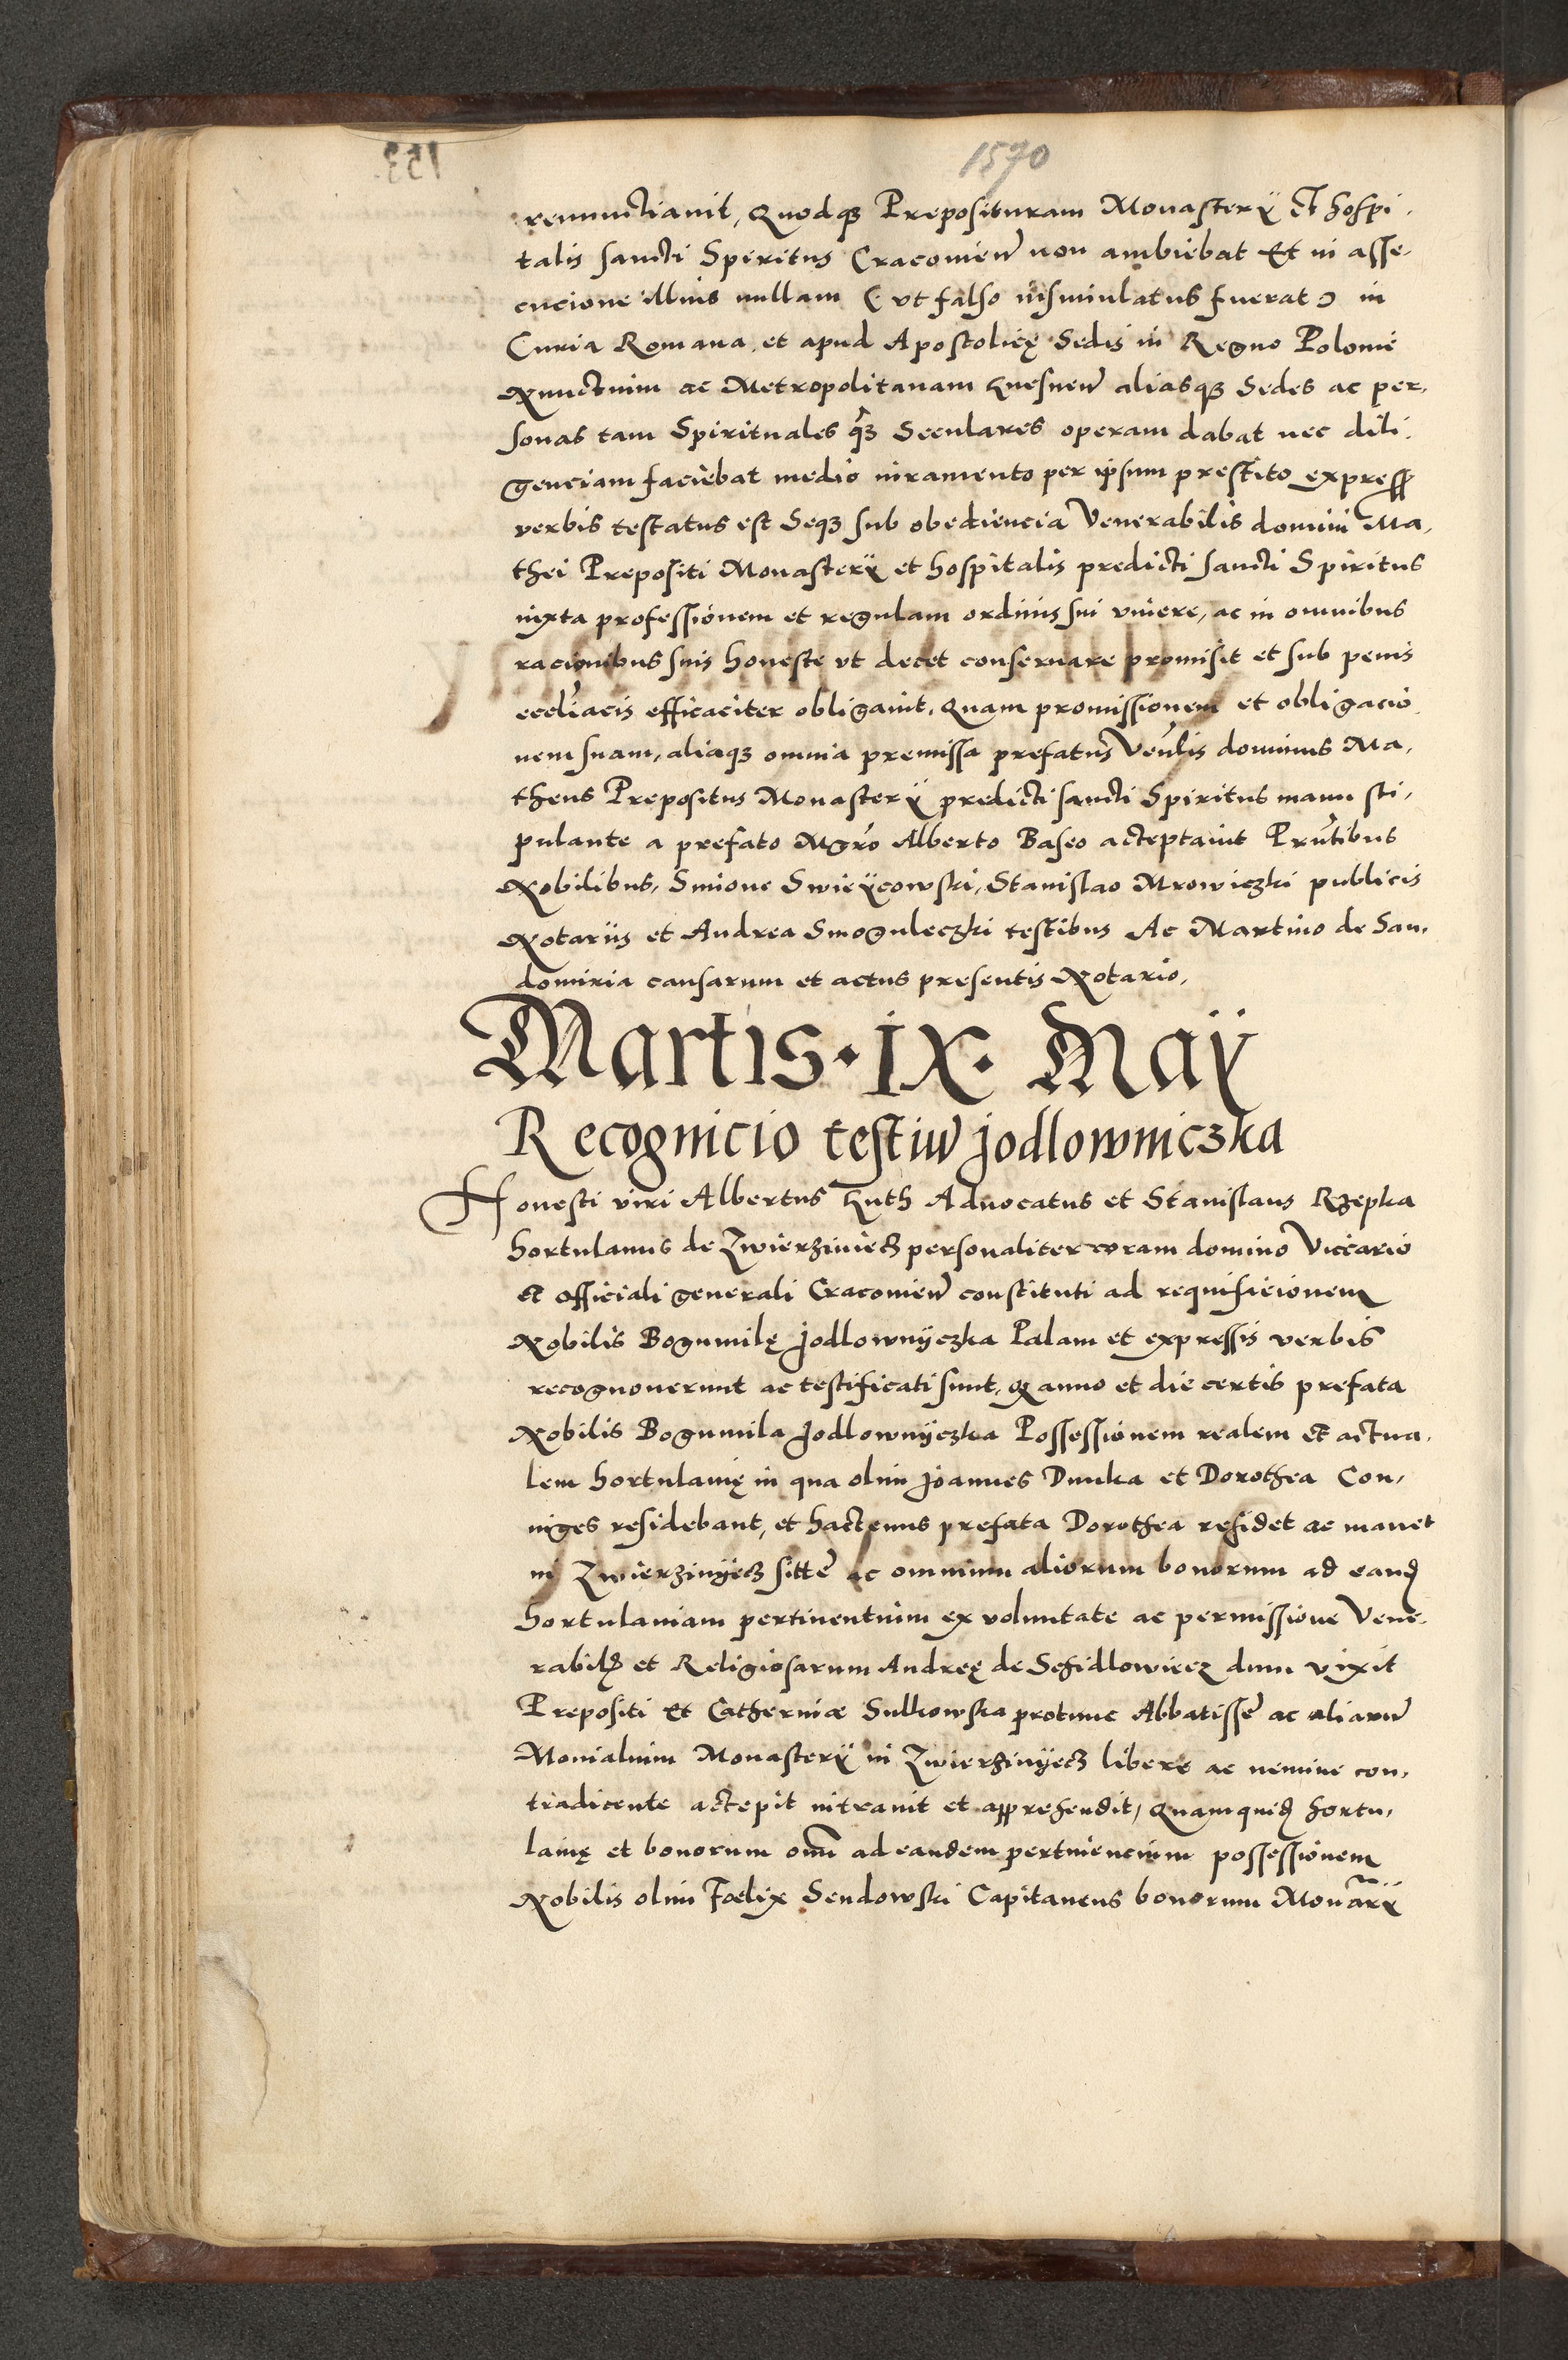 1570
renunctiauit, Quodqꝫ Preposituram Monasterÿ et hospi,
talis sancti Spiritus Cracouien̄ non ambiebat Et in asse,
cucione illius nullam (ut falso insimulatus fuerat) in
Curia Romana, et apud Apostolicę Sedis in Regno Polonie
Nunctium ac Metropolitanam Gnesnen̄ aliasqꝫ Sedes ac per,
sonas tam Spirituales qꝫ̄ Seculares operam dabat nec dili,
genciam faciebat medio iuramento per ipsum prestito express̨
verbis testatus est Seqꝫ sub obediencia Venerabilis domini Ma,
thei Prepositi Monasterÿ et hospitalis predicti sancti Spiritus
iuxta professionem et regulam ordinis sui viuere, ac in omnibus
racionibus suis honeste vt decet conseruare promisit et sub penis
eccl̄iacis efficaciter obligauit, Quam promissionem et obligacio
nem suam, aliaqꝫ omnia premissa prefatus Ven̄lis dominus Ma,
theus Prepositus Monasterÿ predicti sancti Spiritus manu sti,
pulante a prefato Mgr̄o Alberto Baseo acteptauit Prn̄tibus
Nobilibus, Simone Swieÿcowski, Stanislao Mrowiczki publicis
Notariis et Andrea Smoguleczki testibus Ac Martino de San,
domiria causarum et actus presentis Notario,
Martis · IX · Maÿ
Recognicio testiū Jodlowniczka
Honesti viri Albertus Guth Aduocatus et Stanislaus Rzepka
hortulanus de Zwierziniecz personaliter coram domino Viccario
et officiali generali Cracouien̄ constituti ad requisicionem
Nobilis Bogumilę Jodlownÿczka Palam et expressis verbis
recognouerunt ac testificati sunt, qꝫ anno et die certis prefata
Nobilis Bogumila Jodlownÿczka Possessionem realem et actua,
lem hortulanię in qua olim Joannes Dunka et Dorothea Con,
iuges residebant, et hactenus prefata Dorothea residet ac manet
in Zwierzinÿecz sittē ac omnium aliorum bonorum ad eand̨
hortulaniam pertinentium ex voluntate ac permissione Vene,
rabil̨ et Religiosarum Andreę de Sȩidlowiecz dum vixit
Prepositi Et Catherinæ Sulkowska protunc Abbatissē ac aliarū
Monialium Monasterÿ in Zwierzinÿecz libere ac nemine con,
tradicente actepit intrauit et apprehendit, Quamquid̨ hortu,
lanię et bonorum om̄ ad eandem pertinencium possessionem
Nobilis olim Fœlix Sendowski Capitaneus bonorum Monar̄ÿ